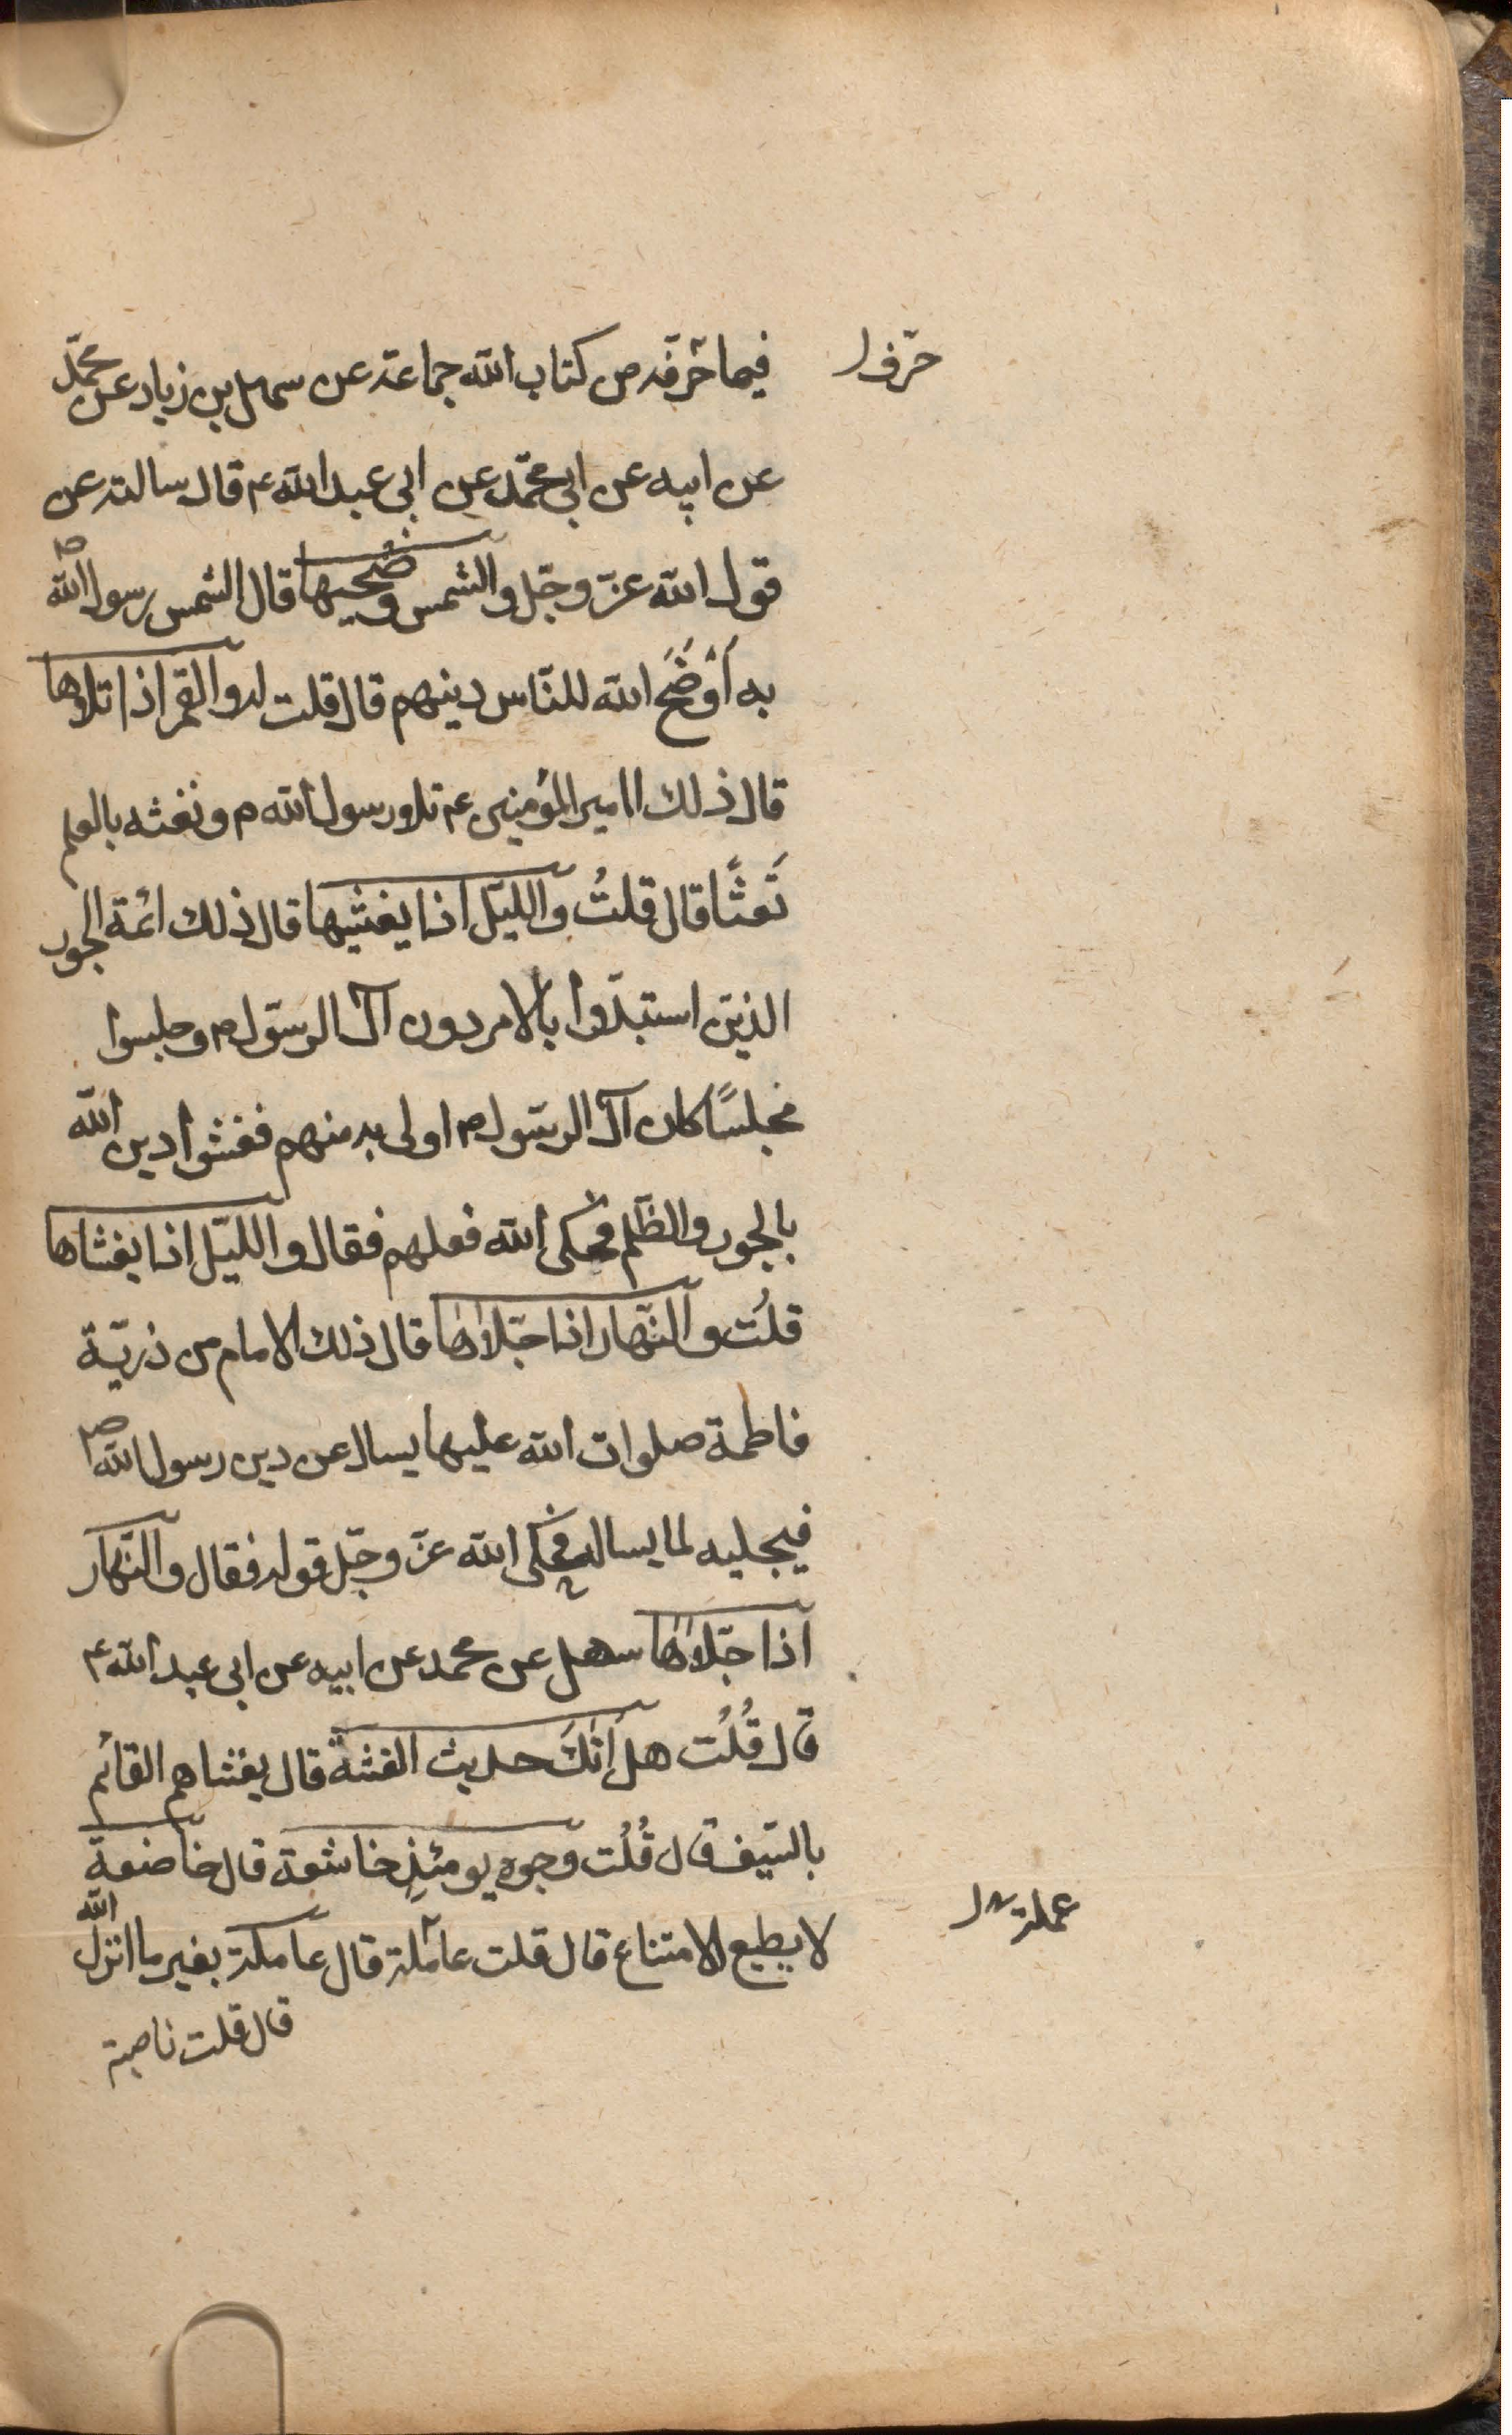 فيما حرفه من كتاب الله جماعة عن سهل بن زياد عن محمّد
حرّفوا
عن ابيه عن ابى محمّد عن ابى عبد الله ع قال سالته عن
قول الله عزّ وجّل والشمس وضُحيها قال الشمس رسول الله ص
به أَوْضَحَ الله للنّاس دينهم قال قلت له والقمر اذا تلاوها
قال ذلك الامير المؤمنين ع تلا ورسول الله م ونفثه بالعلم
نَفثًا قال قلتُ والليّل اذا يغشيها قال ذلك ائمة الجور
الذين استبدّوا بالامر دون آل الرسّول م وجلسوا
مجلسًا كان آل الرسّول م اولى به منهم فغشوا دين الله
بالجور والظّلم فحكى الله فعلهم فقال والليّل اذا يغشاها
قلُت والنّهار اذا جّلاها قال ذلك الامام من ذريّة
فاطمة صلوات الله عليها يسال عن دين رسول الله ص
فيجليه لما يساله فحكى الله عزّ وجّل قوله فقال والنّهار
اذا جّلاها سهل عن محمد عن ابيه عن ابى عبد الله ع
قال قُلُت هل أتٰكَ حديث الغشة قال يغشاهم القائم
بالسّيف قال قُلُت وجوه يومئذٍ خاشعة قال خاضعة
لا يطيع الامتناع قال قلت عاملة قال عاملة بغير ما انزل الله
عملت
قال قلت ناصبة